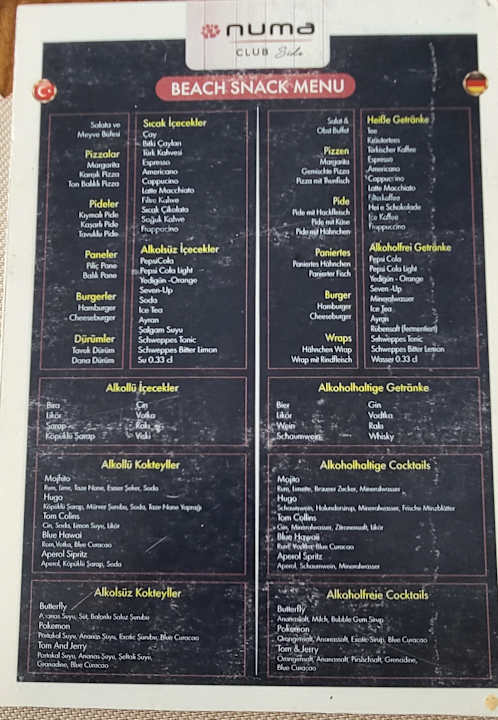 numa
CLUB Side
BEACH SNACK MENU
Salata ve
Meyve Büfesi
Pizzalar
Margarita
Karışık Pizza
Ton Balıklı Pizza
Pideler
Kıymalı Pide
Kaşarlı Pide
Tavuklu Pide
Paneler
Piliç Pane
Balık Pane
Burgerler
Hamburger
Cheeseburger
Dürümler
Tavuk Dürüm
Dana Dürüm
Sıcak İçecekler
Çay
Bitki Çayları
Türk Kahvesi
Espresso
Americano
Cappucino
Latte Macchiato
Filtre Kahve
Sıcak Çikolata
Soğuk Kahve
Frappacino
Alkolsüz İçecekler
PepsiCola
Pepsi Cola Light
Yedigün -Orange
Seven-Up
Soda
Ice Tea
Ayran
Şalgam Suyu
Schweppes Tonic
Schweppes Bitter Limon
Su 0.33 cl
Salat &
Obst Buffet
Pizzen
Margarita
Gemischte Pizza
Pizza mit Thunfisch
Pide
Pide mit Hackfleisch
Pide mit Käse
Pide mit Hähnchen
Paniertes
Paniertes Hähnchen
Panierter Fisch
Burger
Hamburger
Cheeseburger
Wraps
Hähnchen Wrap
Wrap mit Rindfleisch
Heiße Getränke
Tee
Kräutertees
Türkischer Kaffee
Espresso
Americano
Cappucino
Latte Macchiato
Filterkaffee
Heiße Schokolade
Ice Kaffee
Frappuccino
Alkoholfrei Getränke
Pepsi Cola
Pepsi Cola Light
Yedigün - Orange
Seven -Up
Mineralwasser
Ice Tea
Ayran
Rübensaft (fermentiert)
Schweppes Tonic
Schweppes Bitter Lemon
Wasser 0.33 cl
Alkollü İçecekler
Bira
Likör
Şarap
Köpüklü Şarap
Cin
Votka
Rakı
Viski
Alkoholhaltige Getränke
Bier
Likör
Wein
Schaumwein
Gin
Vodtka
Rakı
Whisky
Alkollü Kokteyller
Mojhito
Rum, Lime, Taze Nane, Esmer Şeker, Soda
Hugo
Köpüklü Şarap, Mürver Şurubu, Soda, Taze Nane Yaprağı
Tom Colins
Cin, Soda, Limon Suyu, Likör
Blue Hawai
Rom,Votka, Blue Curacao
Aperol Sipritz
Aperol, Köpüklü Şarap, Soda
Alkoholhaltige Cocktails
Mojito
Rum, Limette, Brauner Zucker, Mineralwasser
Hugo
Schaumwein, Holundersirup, Mineralwasser, Frische Minzblätter
Tom Collins
Gin, Mineralwasser, Zitronensaft, Likör
Blue Hawaii
Rum, Vodtka, Blue Curacao
Aperol Spritz
Aperol, Schaumwein, Mineralwasser
Alkolsüz Kokteyller
Butterfly
Ananas Suyu, Süt, Balonlu Sakız Şurubu
Pokemon
Portakal Suyu, Ananas Suyu, Exotic Şurubu, Blue Curacao
Tom And Jerry
Portakal Suyu, Ananas Suyu, Şeftali Suyu,
Granadine, Blue Curacao
Alkoholfreie Cocktails
Butterfly
Ananassaft, Milch, Bubble Gum Sirup
Pokemon
Orangensaft, Ananassaft, Exotic Sirup, Blue Curacao
Tom & Jerry
Orangensaft, Ananassaft, Pfirsichsaft, Grenadine,
Blue Curacao